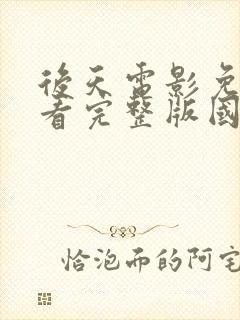 後天電影免
看完整版國
恰泡而的阿宅